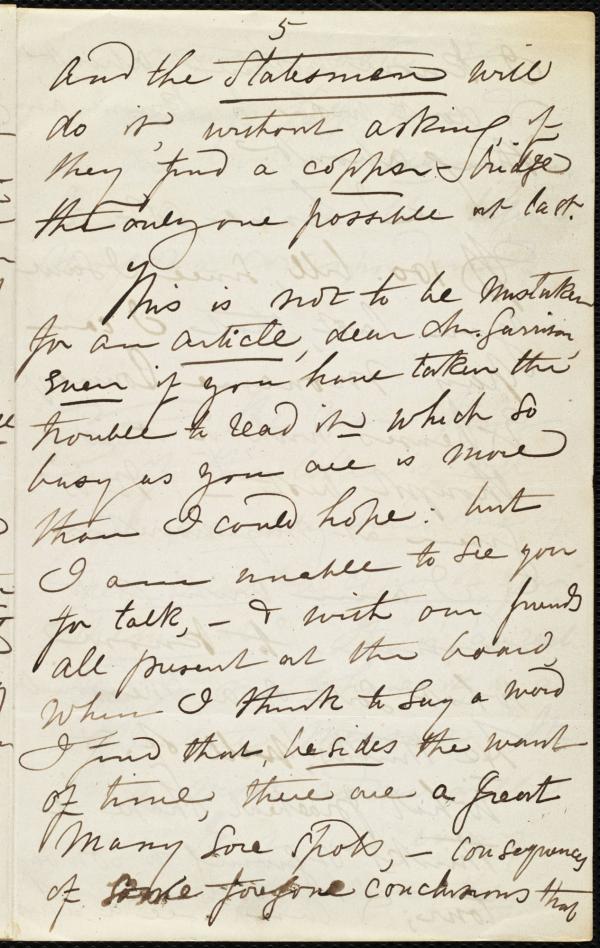 5
and the Statesmen will
do it, without asking, if
they find a copper-bridge
the only one possible at last.
This is not to be mistaken
for an article, dear Mr. Garrison,
even if you have taken the
trouble to read it which so
busy as you are is more
than I could hope: but
I am unable to see you
for talk, - & with our friends
all present at the board,
when I think to say a word
I find that, besides the want
of time, there are a great
many sore spots, - consequences
of some foregone conclusions that